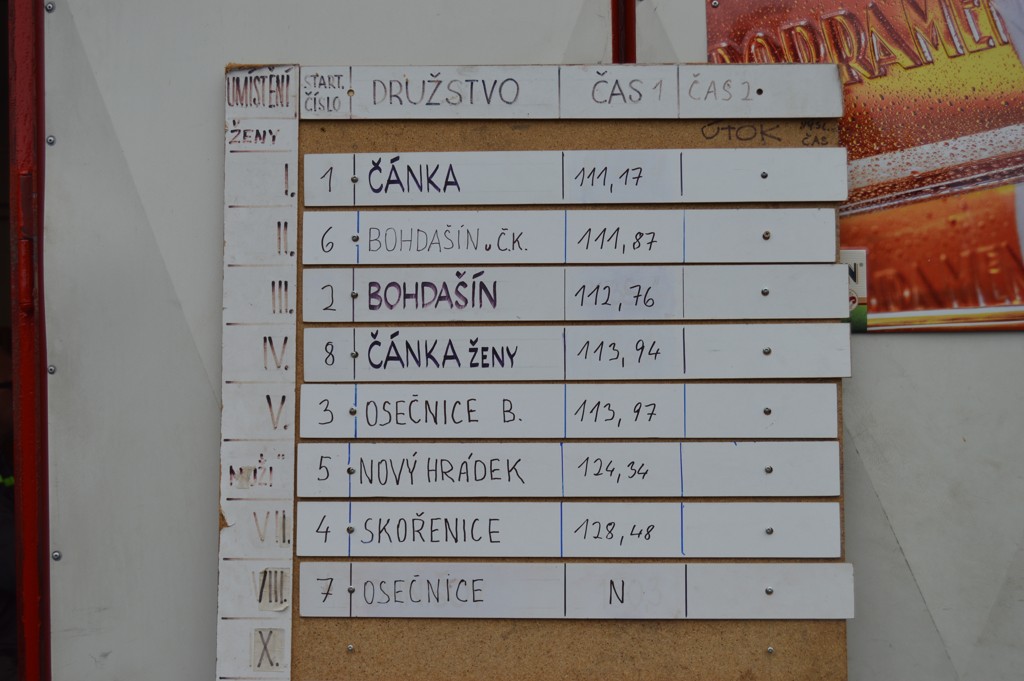 UMÍSTĚNÍ START. ČÍSLO DRUŽSTVO ČAS 1 ČAS 2
ŽENY ÚTOK ČAS
I. 1 ČÁNKA 111,17
II. 6 BOHDAŠÍN u Č.K. 111,87
III. 2 BOHDAŠÍN 112,76
IV. 8 ČÁNKA ŽENY 113,94
V. 3 OSEČNICE B. 113,97
MUŽI 5 NOVÝ HRÁDEK 124,34
VII. 4 SKOŘENICE 128,48
VIII. 7 OSEČNICE N
X.